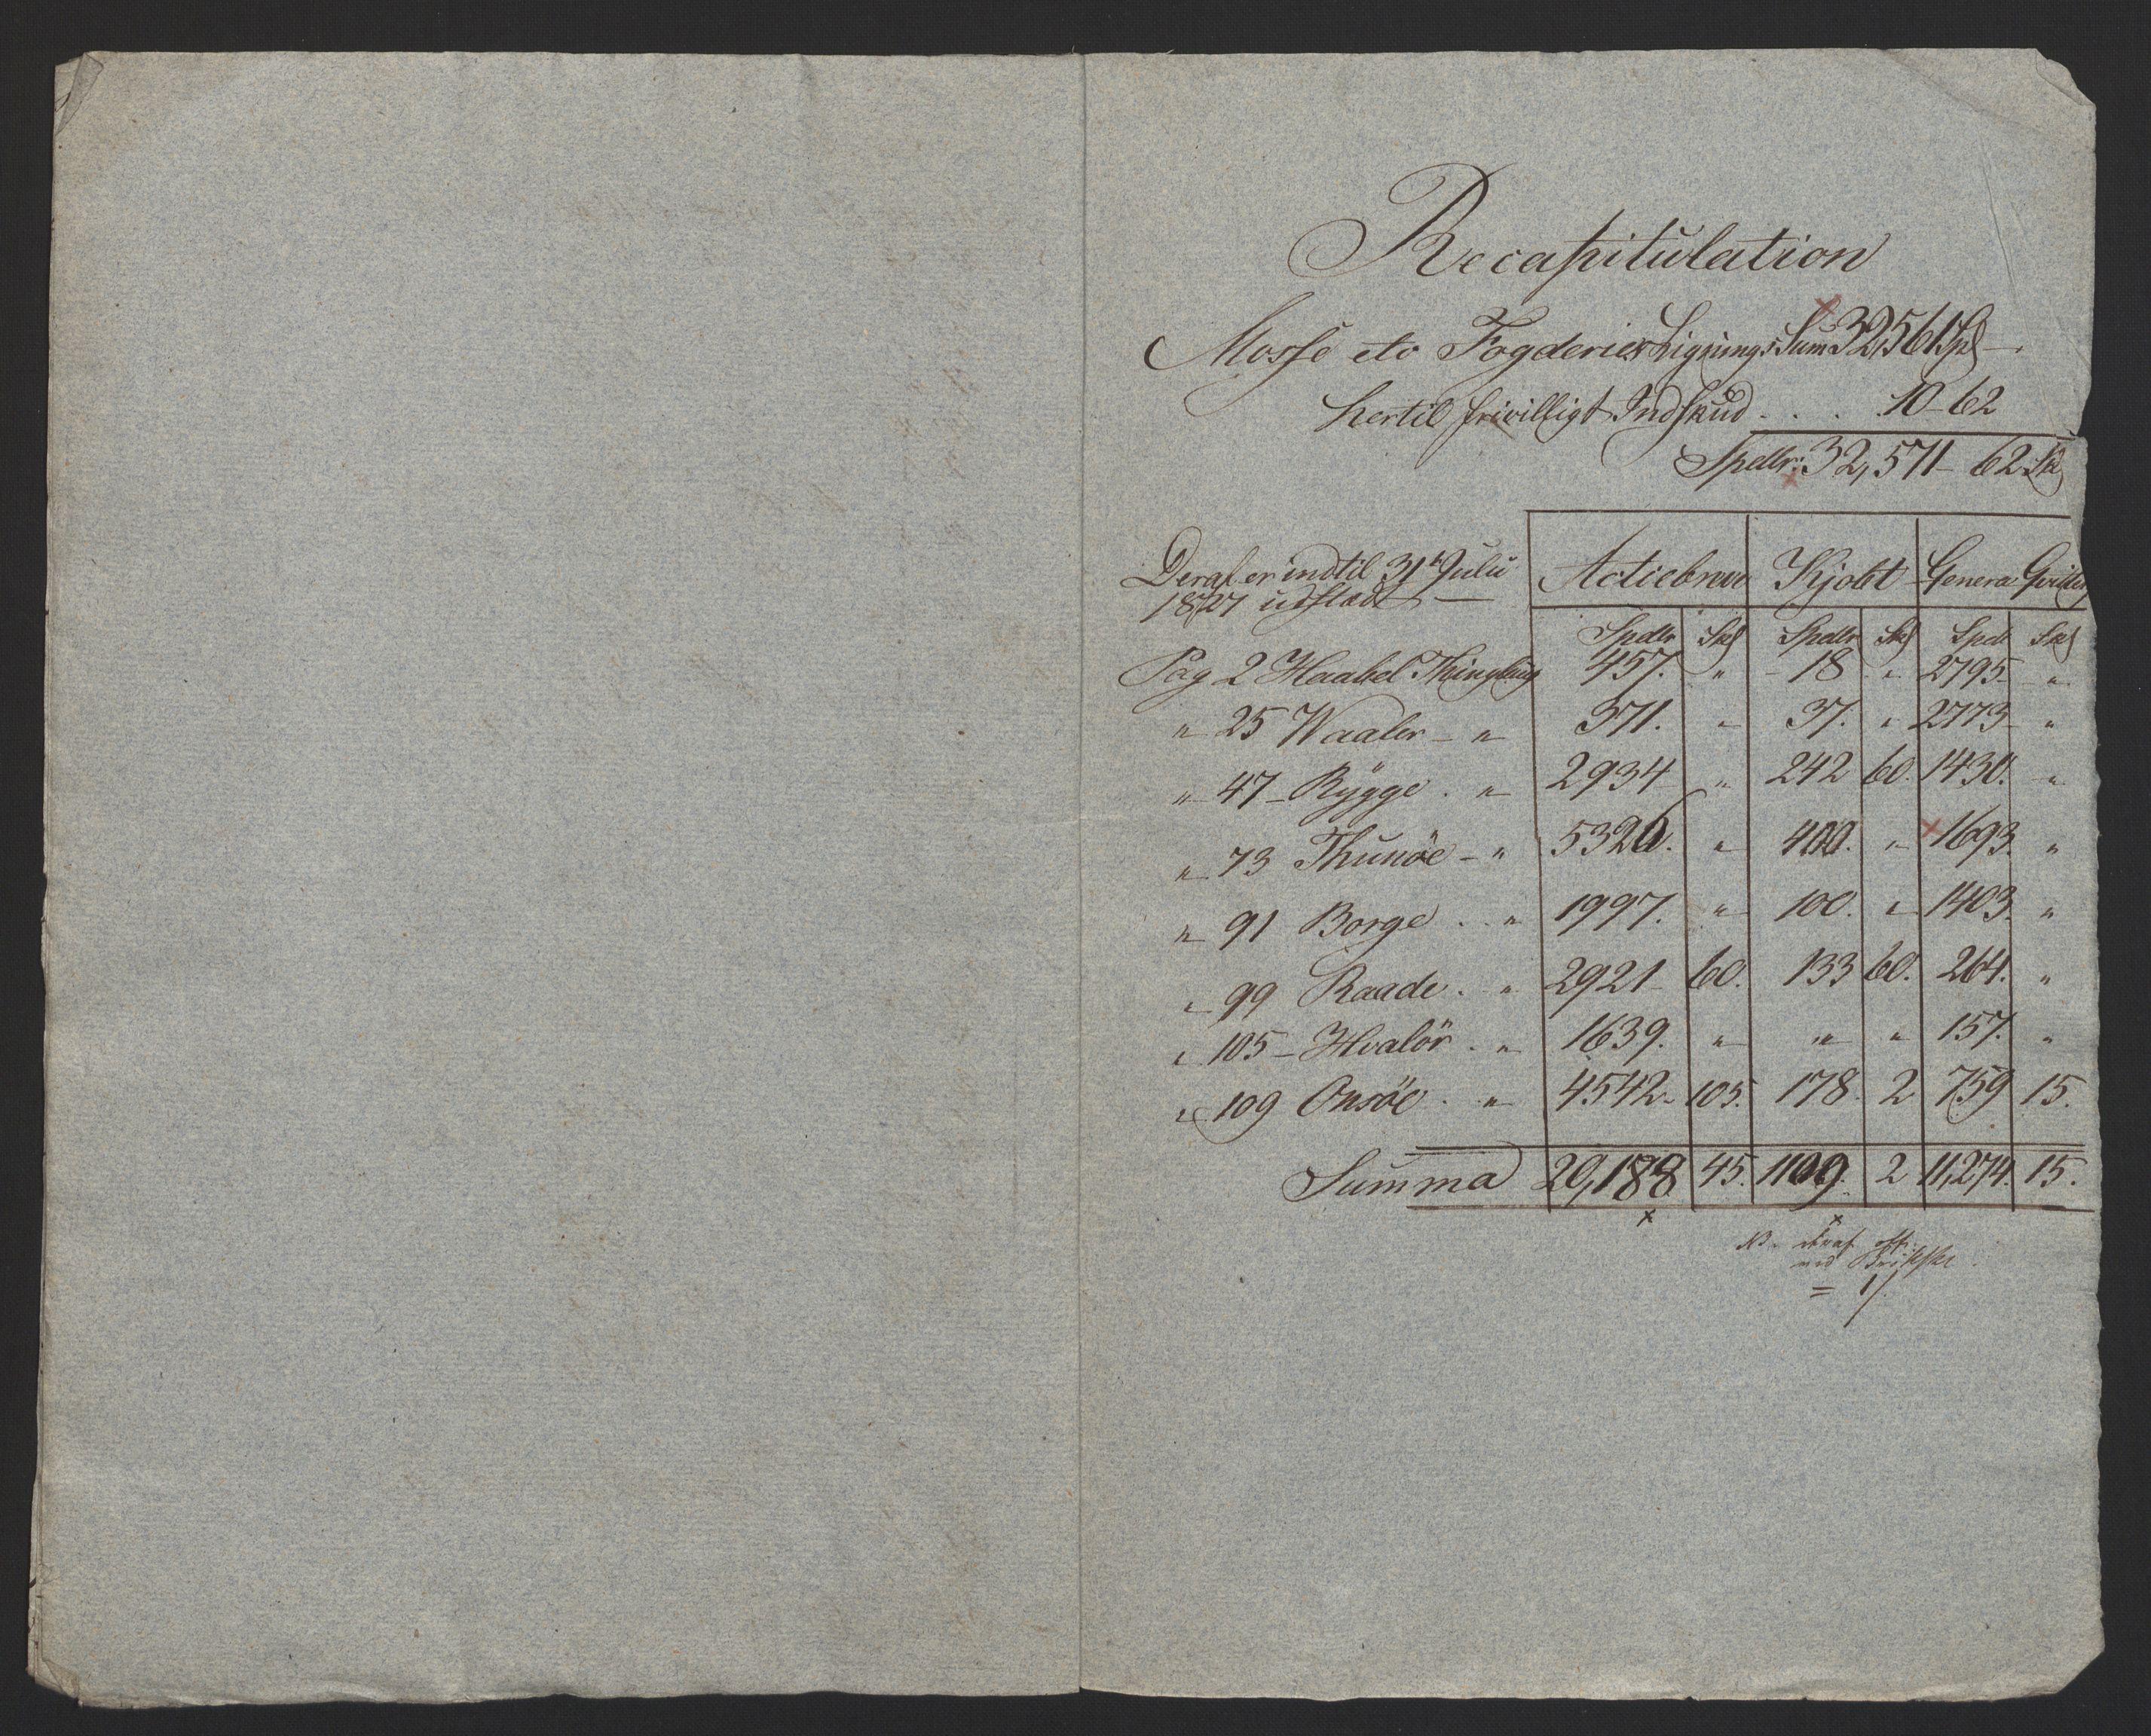 Recapitulation
Mosse etc Fogderies Lignings Sum 32,561 Spd —.
hertil frivilligt Indskud . . . . 10 - 62
Spdlr: 32,571 - 62 Sk
Deraf er indtil 31te Julii Actiebreve Kjøbt Genera Qvitter
1827 udstædt —
Spdlr Sk Spdlr Sk Spd Sk
Pag 2 Haabel Thinglaug 457. " - 18 " 2795 - "
" 25 Waaler - " 371. " 37. " 2773 "
" 47 - Rÿgge . " 2934 " 242 60. 1430. "
" 73 Thunöe - " 5326. " 400. " 1693. "
" 91 Borge . . " 1997. " 100. " 1403. "
" 99 Raade . " 2921 - 60. 133 60. 264. "
" 105 - Hvalör . " 1639. " " " 157. "
" 109 Onsöe . " 4542 - 105. 178. 2 759 15.
Summa 20,188 45. 1109. 2 11,274. 15.
x x
NB. deraf
ved
=